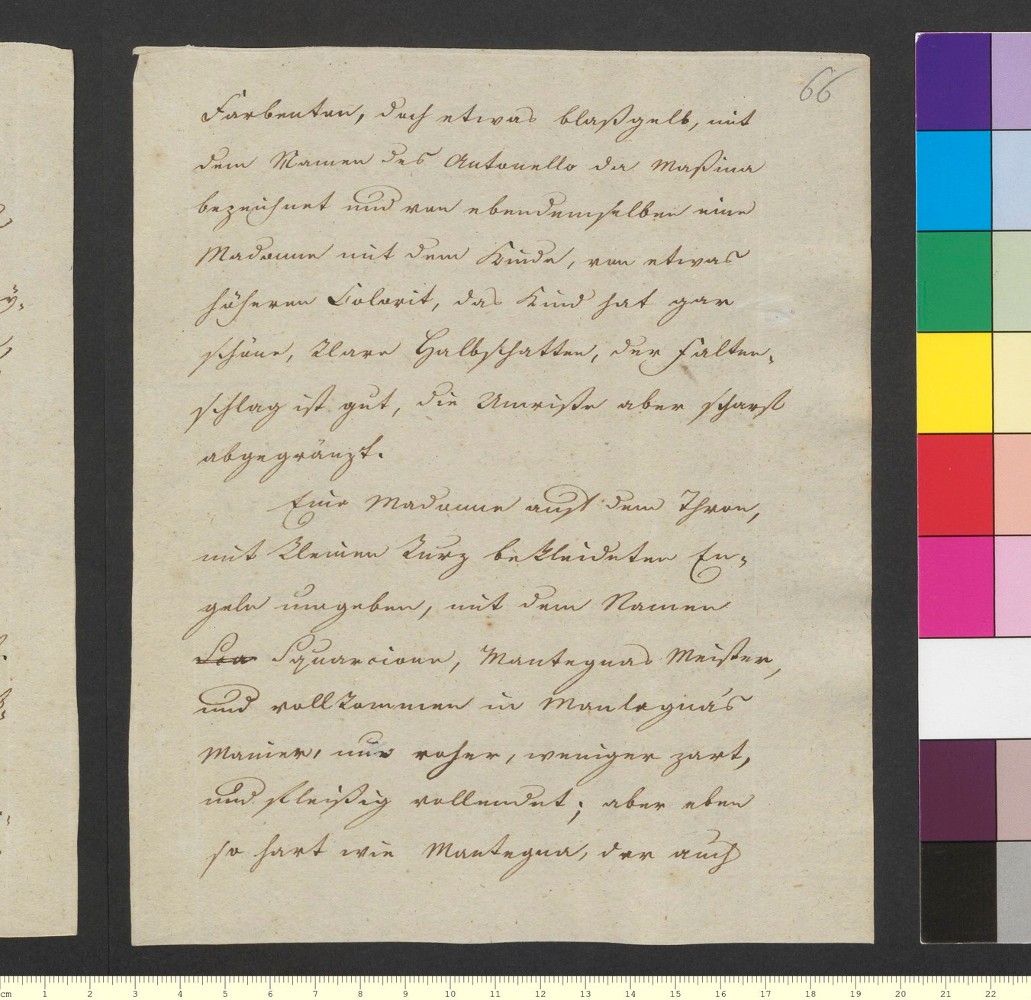 66
Farbenton, doch etwas blaßgelb, mit
dem Namen des Antonello da Maßina
bezeichnet und von ebendemselben eine
Madonne mit dem Kinde, von etwas
höherem Colorit, das Kind hat gar
schöne, klare Halbschatten, der Falten¬
schlag ist gut, die Umriße aber scharf
abgegränzt.
Eine Madonne auf dem Thron,
mit kleinen kurz bekleideten En¬
geln umgeben, mit dem Namen
Squarcione, Mantegnas Meister,
und vollkommen in Mantegna's
Manier, nur roher, weniger zart,
und fleißig vollendet; aber eben
so hart wie Mantegna, der auch
cm 1 2 3 4 5 6 7 8 9 10 11 12 13 14 15 16 17 18 19 20 21 22